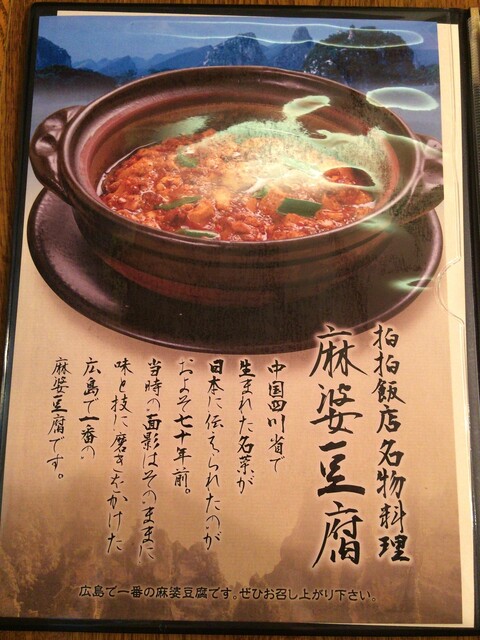 拍拍飯店名物料理
麻婆豆腐
中国四川省で
生まれた名菜が
日本に伝えられたのが
およそ七十年前。
当時の面影はそのままに
味と技に磨きをかけた
広島で一番の
麻婆豆腐です。
広島で一番の麻婆豆腐です。ぜひお召し上がり下さい。